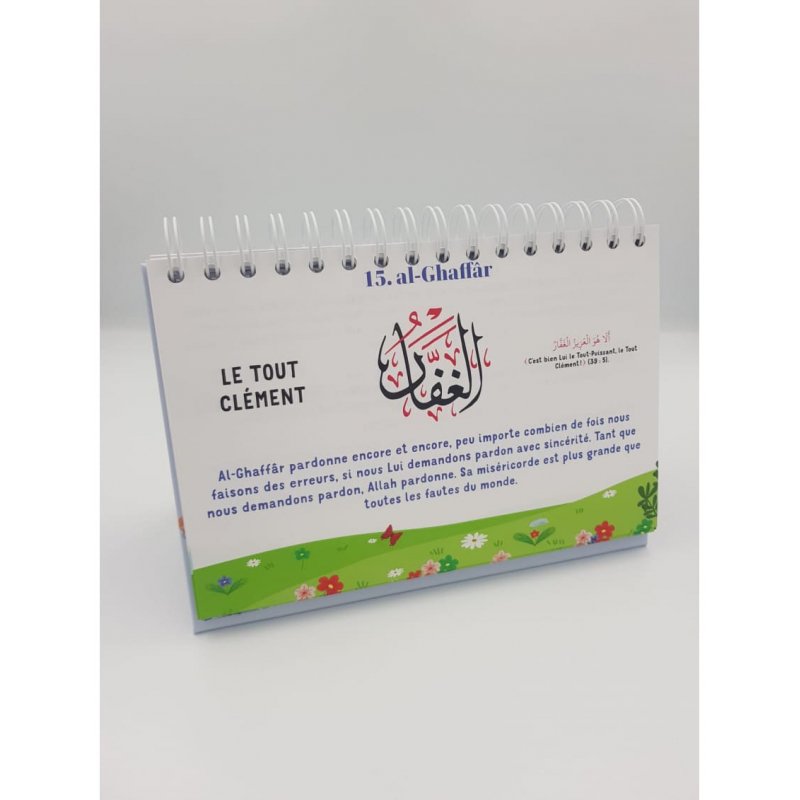 15. al-Ghaffâr
LE TOUT
CLÉMENT
الغفار
أَلَا هُوَ الْعَزِيزُ الْغَفَّارُ
﴾C'est bien Lui le Tout-Puissant, le Tout
Clément!﴿ (39 : 5).
Al-Ghaffâr pardonne encore et encore, peu importe combien de fois nous
faisons des erreurs, si nous Lui demandons pardon avec sincérité. Tant que
nous demandons pardon, Allah pardonne. Sa miséricorde est plus grande que
toutes les fautes du monde.